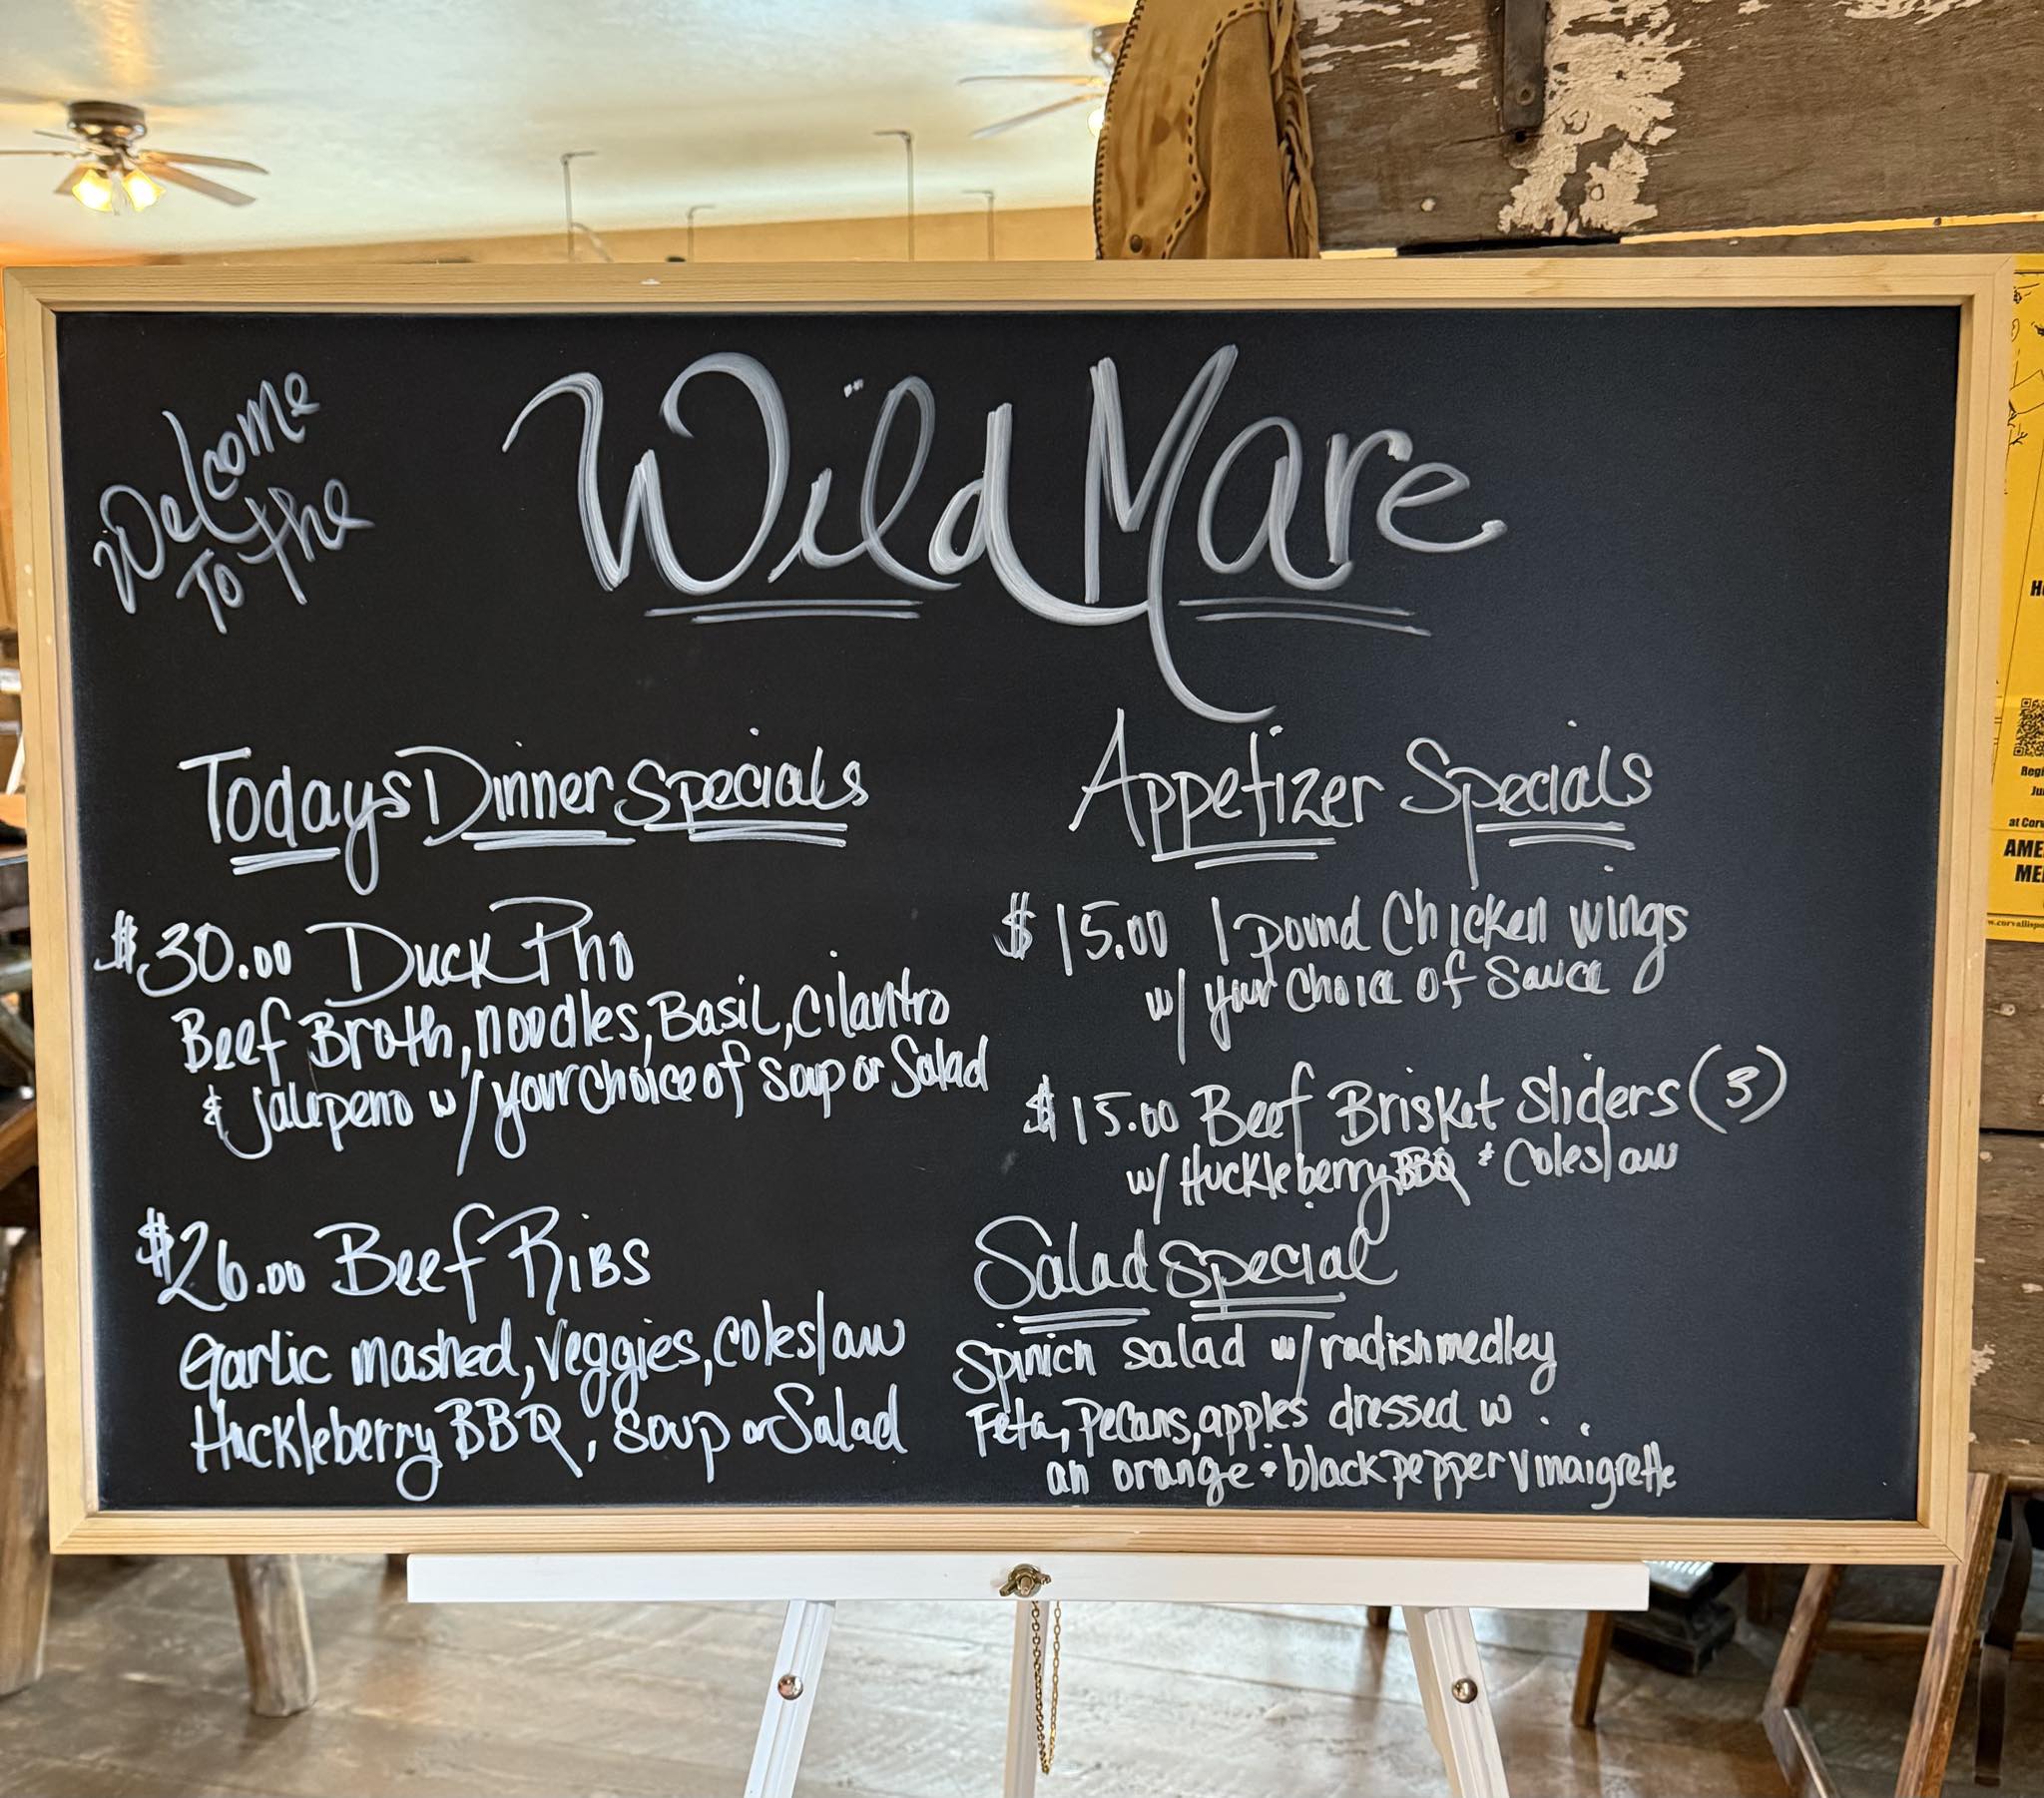 Welcome
To the
Wild Mare
Todays Dinner Specials
$30.00 Duck Pho
Beef Broth, noodles, Basil, Cilantro
& jalepeno w/ your choice of soup or Salad
$26.00 Beef Ribs
Garlic mashed, veggies, coleslaw
Huckleberry BBQ, soup or Salad
Appetizer Specials
$15.00 1 pound Chicken wings
w/ your Choice of Sauce
$15.00 Beef Brisket Sliders (3)
w/ Huckleberry BBQ & Coleslaw
Salad Special
Spinich salad w/ radish medley
Feta, Pecans, apples dressed w
an orange & black pepper vinaigrette
at Corv
AME
ME